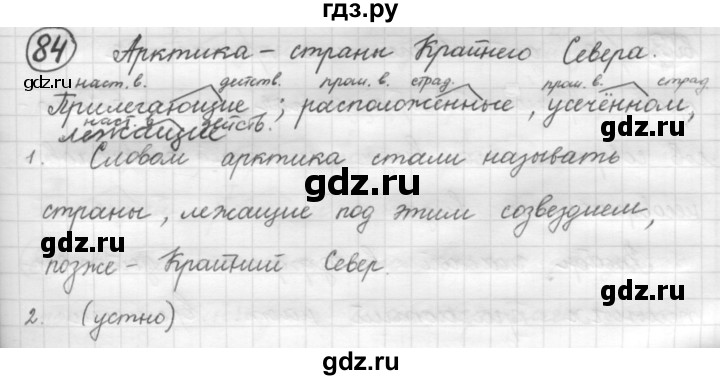 гдз.ру
84 Арктика – страны Крайнего Севера.
наст. в. действ. прош. в. страд. прош. в. страд.
Прилегающие; расположенные, усечённом,
наст. в. действ.
лежащие
gdz.ru
1. Словом арктика стали называть
gdz.ru
страны, лежащие под этим созвездием,
позже – Крайний Север.
gdz.ru
2. (устно)
gdz.ru